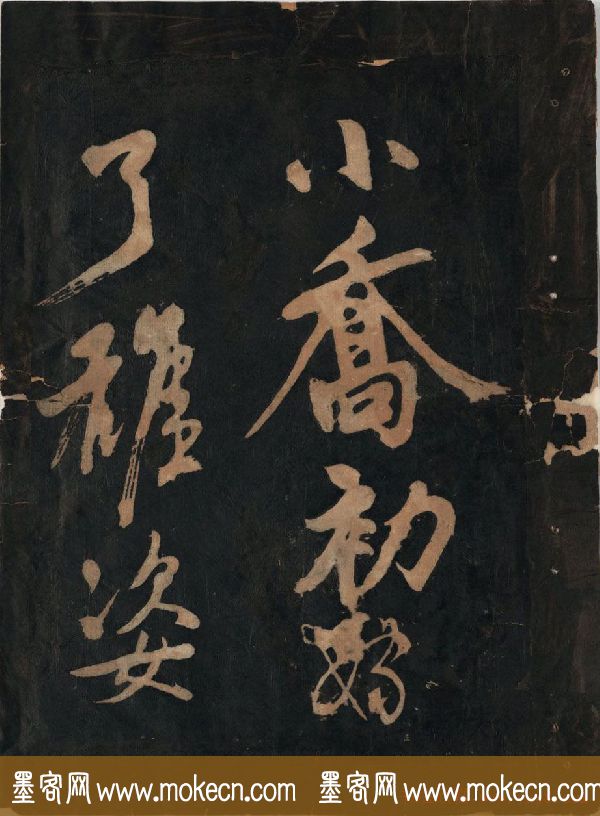 小喬初嫁
了雄姿
墨客网 www.mokecn.com 墨客网 www.mokecn.com